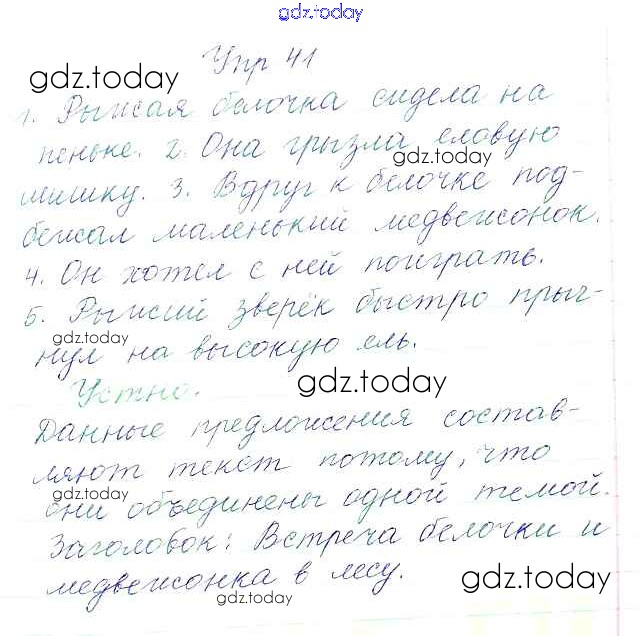 gdz.today
Упр 41
gdz.today
1. Рыжая белочка сидела на
пеньке. 2. Она грызла еловую
gdz.today
шишку. 3. Вдруг к белочке под-
бежал маленький медвежонок.
4. Он хотел с ней поиграть.
5. Рыжий зверёк быстро прыг-
gdz.today
нул на высокую ель.
gdz.today
Устно.
Данные предложения состав-
ляют текст потому, что
gdz.today
они объединены одной темой.
Заголовок: Встреча белочки и
медвежонка в лесу.
gdz.today
gdz.today